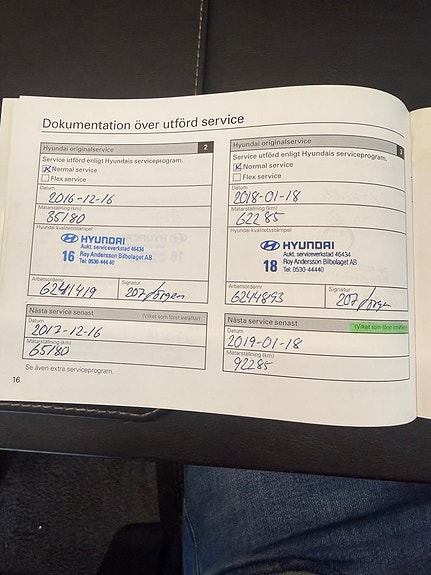 Dokumentation över utförd service
Hyundai originalservice 2
Service utförd enligt Hyundais serviceprogram.
Normal service
Flex service
Datum
2016-12-16
Mätarställning (km)
35180
Hyundai kvalitetsstämpel
HYUNDAI
Aukt. serviceverkstad 46434
16 Roy Andersson Bilbolaget AB
Tel: 0530-444 40
Arbetsordernr Signatur
6241419 207 Jörgen
Nästa service senast (Vilket som först inträffar)
Datum
2017-12-16
Mätarställning (km)
65180
Se även extra serviceprogram.
16
Hyundai originalservice 3
Service utförd enligt Hyundais serviceprogram.
Normal service
Flex service
Datum
2018-01-18
Mätarställning (km)
62285
Hyundai kvalitetsstämpel
HYUNDAI
Aukt. serviceverkstad 46434
18 Roy Andersson Bilbolaget AB
Tel: 0530-44440
Arbetsordernr Signatur
6244893 207 Jörgen
Nästa service senast (Vilket som först inträffar)
Datum
2019-01-18
Mätarställning (km)
92285